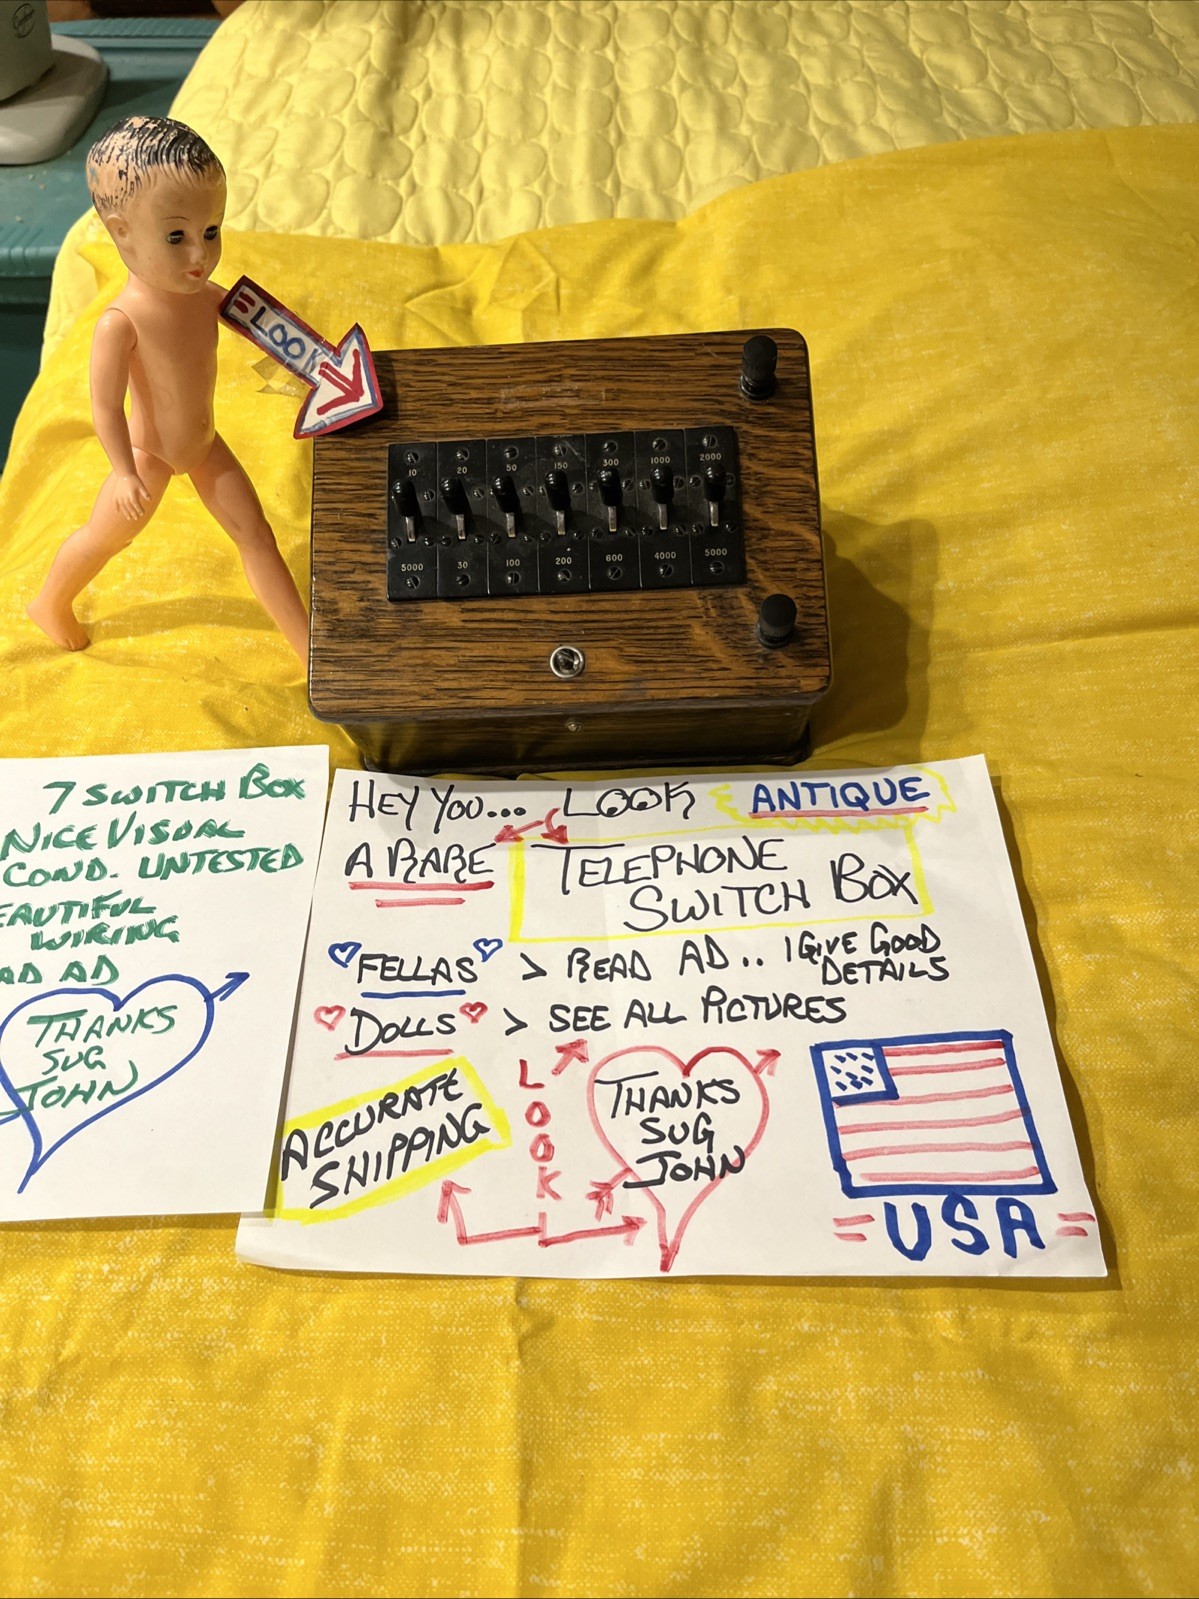 = LOOK
10 20 50 150 300 1000 2000
5000 30 100 200 600 4000 5000
7 SWITCH BOX
NICE VISUAL
COND. UNTESTED
EAUTIFUL
WIRING
AD AD
THANKS
SUG
JOHN
HEY YOU... LOOK ANTIQUE
A RARE TELEPHONE
SWITCH BOX
FELLAS > READ AD.. I GIVE GOOD
DETAILS
DOLLS > SEE ALL PICTURES
ACCURATE
SHIPPING
LOOK
THANKS
SUG
JOHN
= USA =